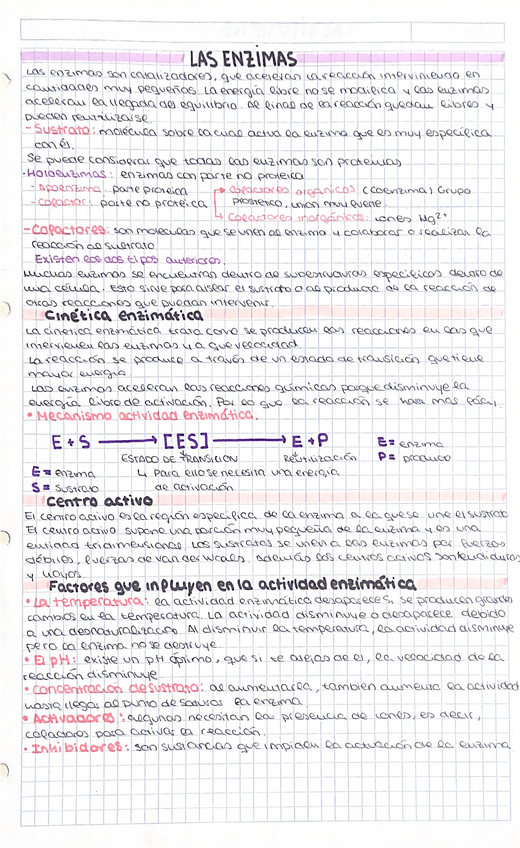 LAS ENZIMAS
Las enzimas son catalizadores, que aceleran la reacción interviniendo en
cantidades muy pequeñas. La energía libre no se modifica y las enzimas
aceleran la llegada del equilibrio. Al final de la reacción quedan libres y
pueden reutilizarse.
- Sustrato: molécula sobre la cual actua la enzima que es muy específica
con él.
Se puede considerar que todas las enzimas son proteínas
· Holoenzimas: enzimas con parte no proteica
- Apoenzima: parte proteica
- Cofactor: parte no proteica
Cofactores orgánicos (coenzima) Grupo
prostético, union muy fuerte.
Cofactores inorgánicos: iones Mg2+
- Cofactores: son moleculas que se unen al enzima y colaborar o realizar la
reacción al sustrato
Existen los dos tipos anteriores.
Muchas enzimas se encuentran dentro de subestructuras específicas dentro de
una célula. Esto sirve para aislar el sustrato o al producto de la reacción de
otras reacciones que puedan intervenir.
Cinética enzimática
La cinetica enzimática trata como se producen las reacciones en las que
intervienen las enzimas y a que velocidad.
La reacción se produce a través de un estado de transición que tiene
mayor energía
Las enzimas aceleran las reacciones químicas porque disminuye la
energía libre de activación. Por lo que la reacción se hara mas fácil.
• Mecanismo actividad enzimática.
E + S → [ES] → E + P
E = enzima
ESTADO DE TRANSICION
Reutilización
P = producto
E = enzima
↳ Para ello se necesita una energía
S = sustrato
de activación
Centro activo
El centro activo es la región específica de la enzima a la que se une el sustrato
El centro activo supone una porción muy pequeña de la enzima y es una
entidad tridimensional. Los sustratos se unen a las enzimas por fuerzas
débiles, fuerzas de van der Waals. Además los centros activos son hendiduras
y hoyos.
Factores que influyen en la actividad enzimática
• La temperatura: la actividad enzimática desaparece si, se producen grandes
cambios en la temperatura. La actividad disminuye o desaparece debido
a una desnaturalización. Al disminuir la temperatura, la actividad disminuye
pero la enzima no se destruye.
• El pH: existe un pH óptimo, que si te alejas de el, la velocidad de la
reacción disminuye
• Concentración de sustrato: al aumentarla, tambien aumenta la actividad
hasta llegar al punto de saturar la enzima
• Activadores: algunos necesitan la presencia de iones, es decir,
cofactores para activar la reacción.
• Inhibidores: son sustancias que impiden la actuación de la enzima